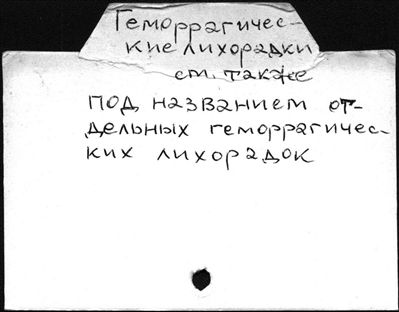 Геморрагичес-
кие лихорадки
см. также
под названием от-
дельных геморрагичес-
ких лихорадок